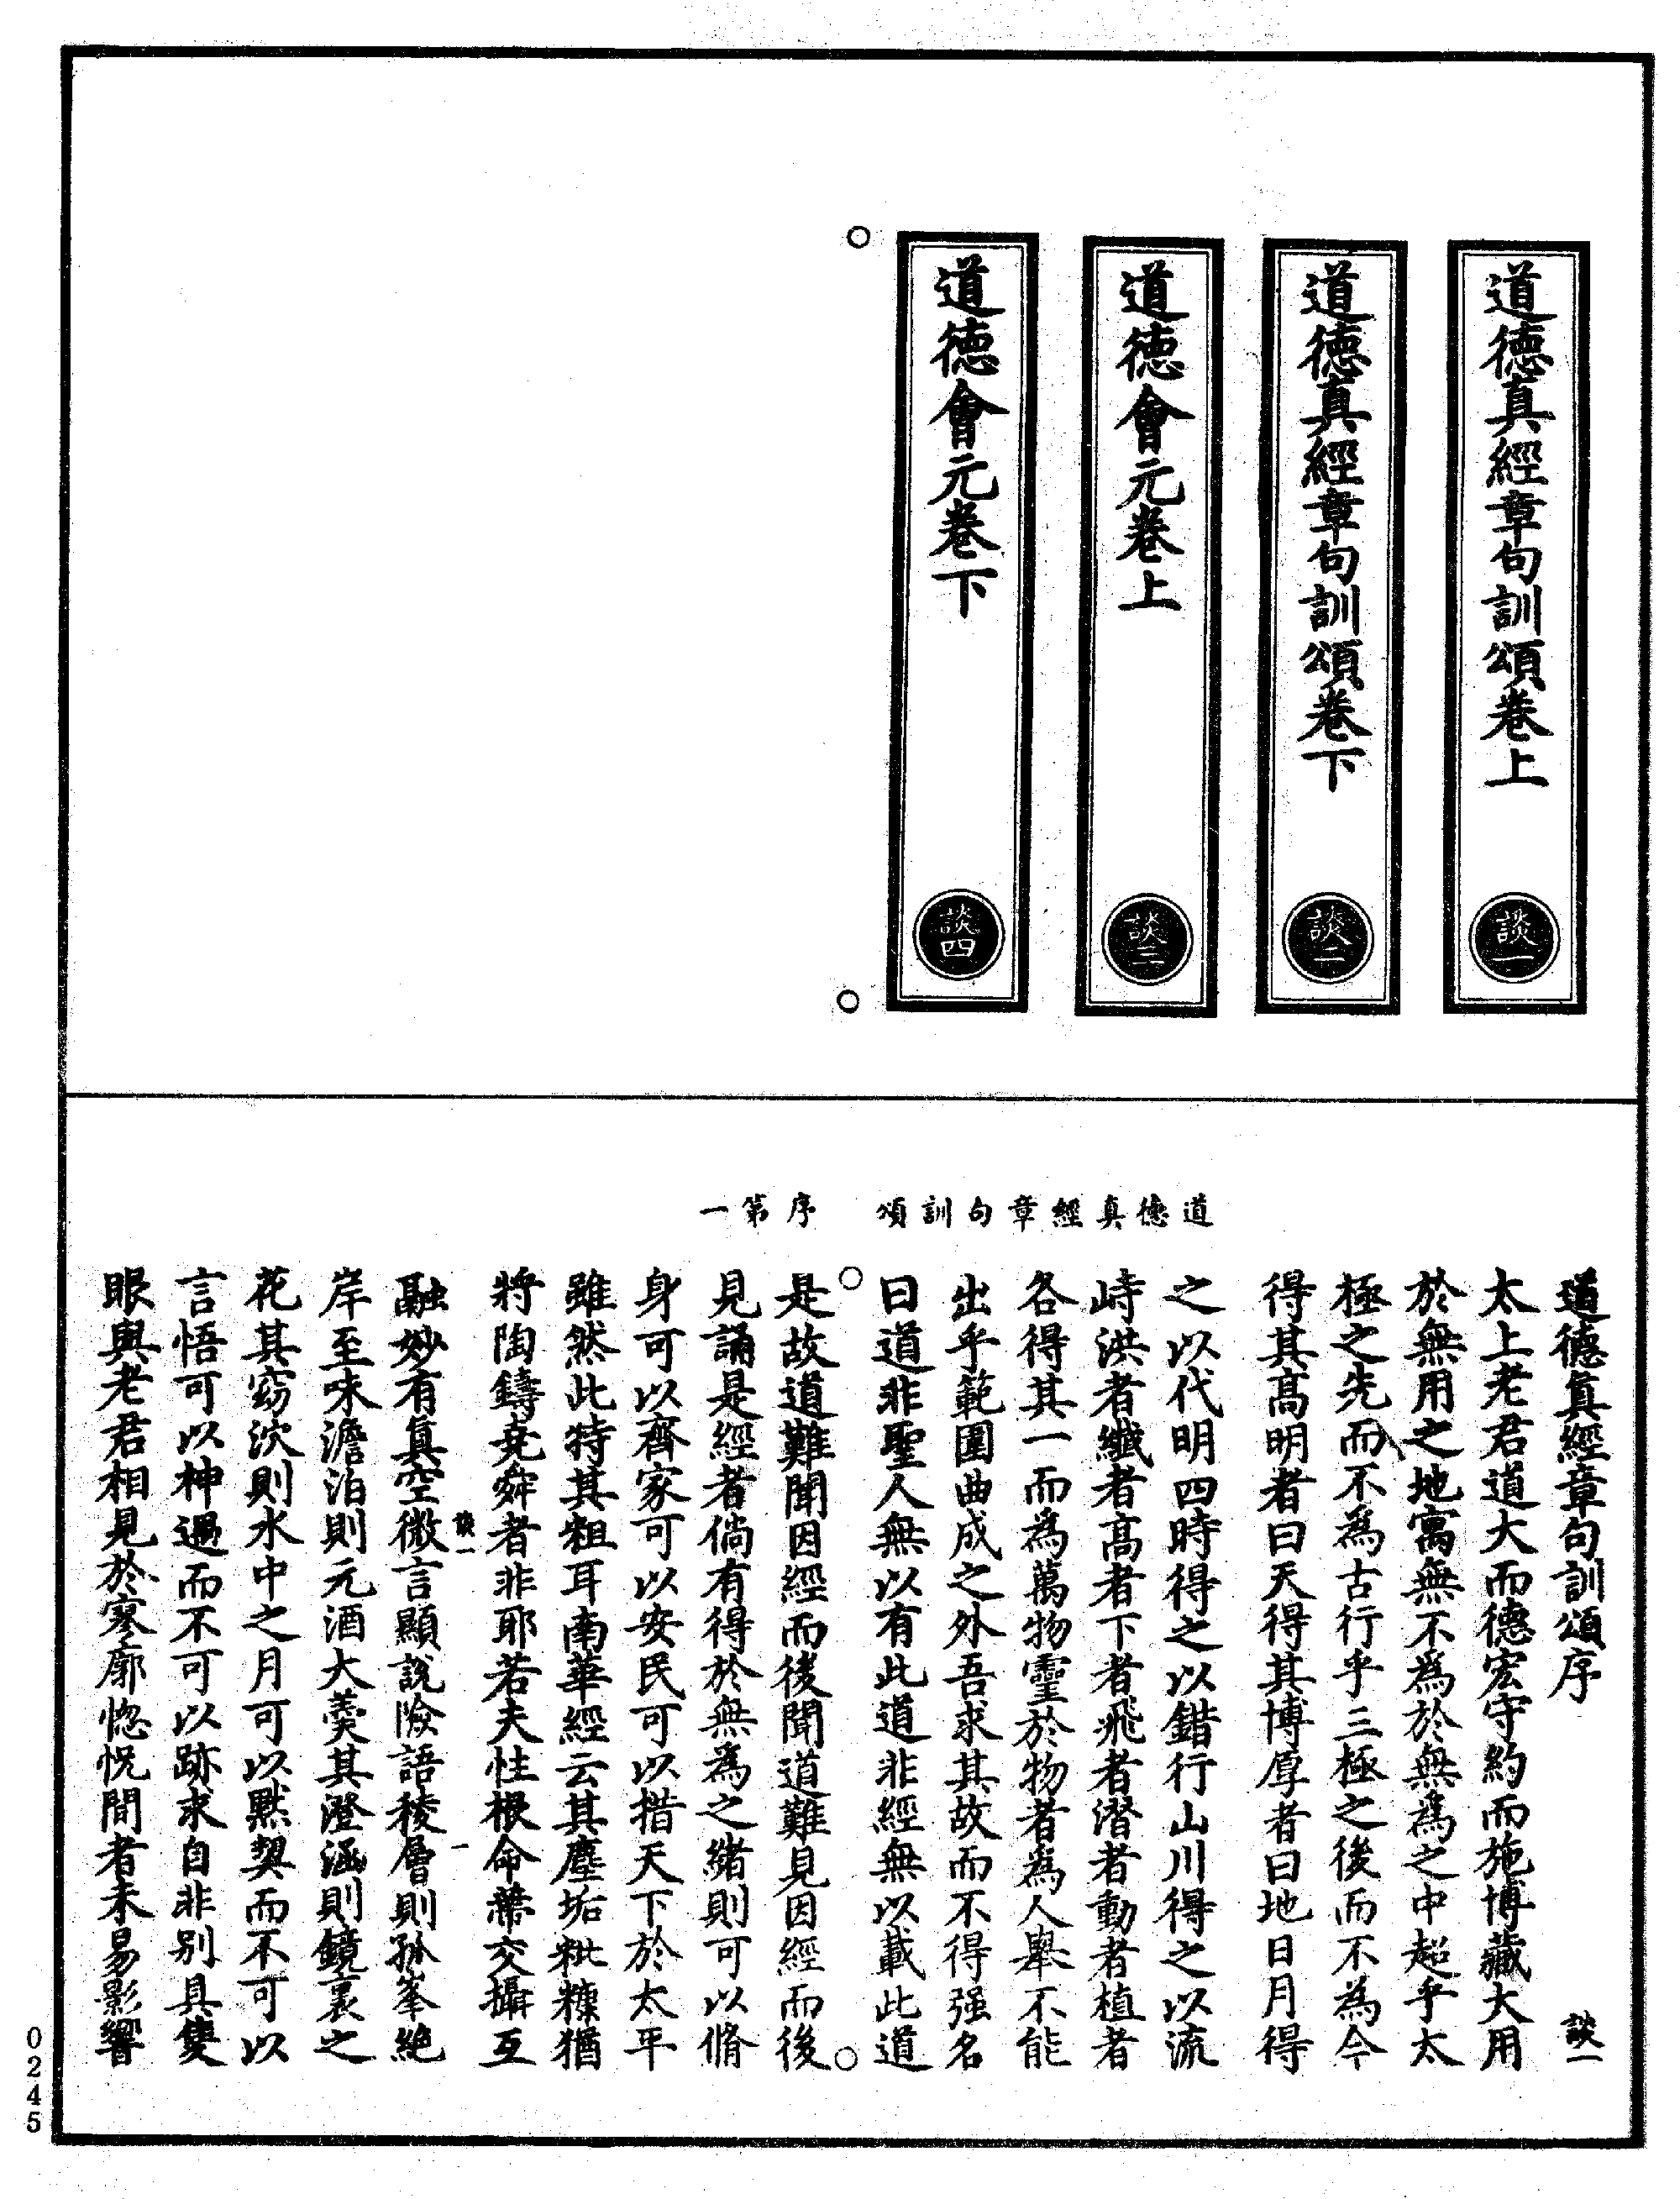 道德真經章句訓頌卷上
談一
道德真經章句訓頌卷下
談二
道德會元卷上
談三
道德會元卷下
談四
道德真經章句訓頌　序第一
道德眞經章句訓頌序　談一
太上老君道大而德宏守約而施博藏大用
於無用之地寓無不爲於無爲之中超乎太
極之先而不為古行乎三極之後而不為今
得其高明者曰天得其博厚者曰地日月得
之以代明四時得之以錯行山川得之以流
峙洪者纖者高者下者飛者潛者動者植者
各得其一而爲萬物靈於物者為人舉不能
出乎範圍曲成之外吾求其故而不得强名
曰道非聖人無以有此道非經無以載此道
是故道難聞因經而後聞道難見因經而後
見誦是經者倘有得於無爲之緒則可以脩
身可以齊家可以安民可以措天下於太平
雖然此特其粗耳南華經云其塵垢粃糠猶
將陶鑄堯舜者非耶若夫性根命蔕交攝互
談一　一
融妙有眞空微言顯說險語稜層則孤峯絶
岸至味澹泊則元酒大羹其澄涵則鏡裏之
花其窈沈則水中之月可以默契而不可以
言悟可以神遇而不可以跡求自非别具隻
眼與老君相見於寥廓惚恍間者未易影響
0245